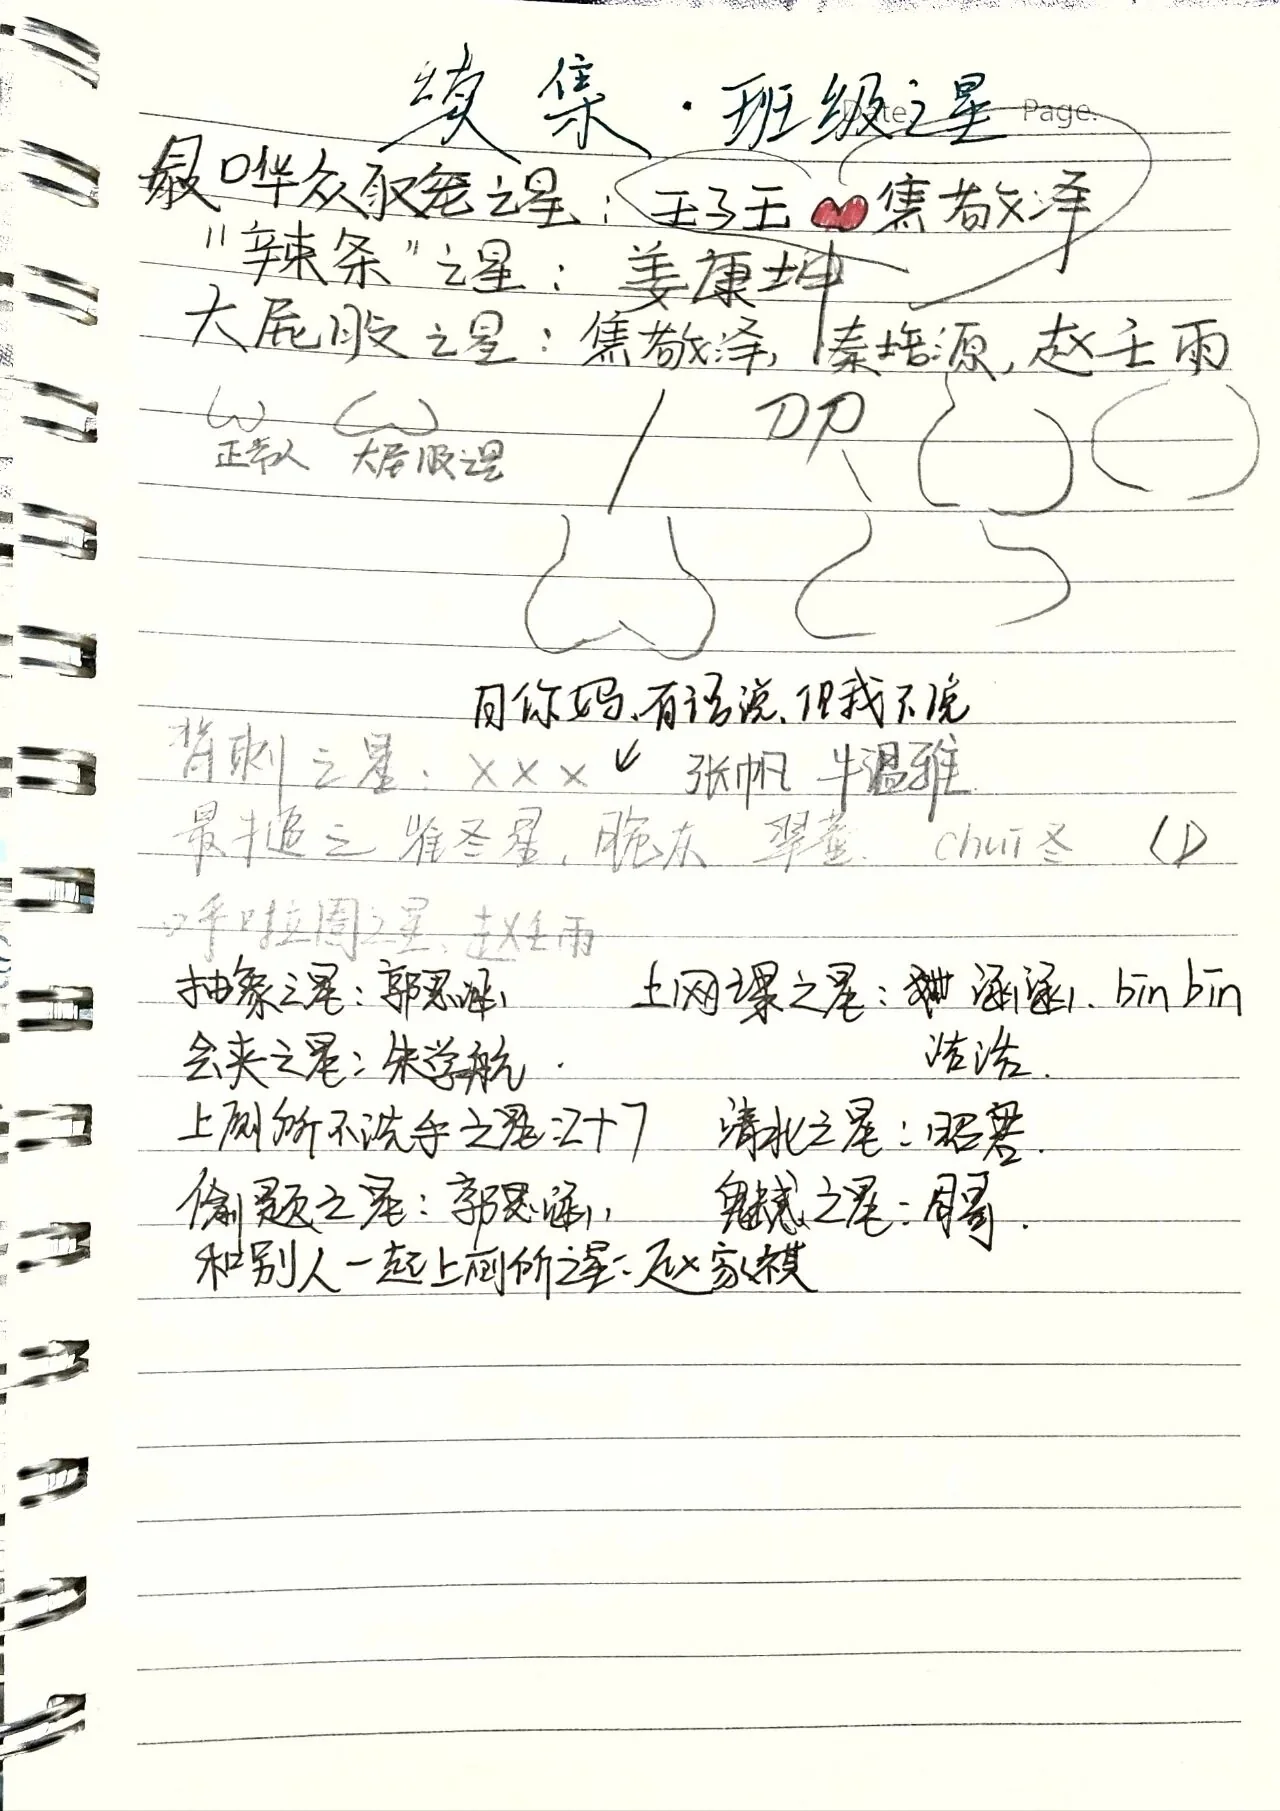 续集·班级之星
Date Page.
最哗众取宠之星：王子王 焦敬泽
"辣条"之星：姜康坤
大屁股之星：焦敬泽，秦培源，赵壬雨
正常人 大屁股之星
有语说，但我不说
背刺之星：××× 张帆 牛温雅
最 之 星，
呼啦圈之星、赵壬雨
抽象之星：郭思涵 上网课之星： 涵涵、bin bin
会夹之星：朱学航 浩浩.
上厕所不洗手之星： 清北之星：昭君.
偷题之星：郭思涵 鬼械之星：周哥.
和别人一起上厕所之星：赵家祺